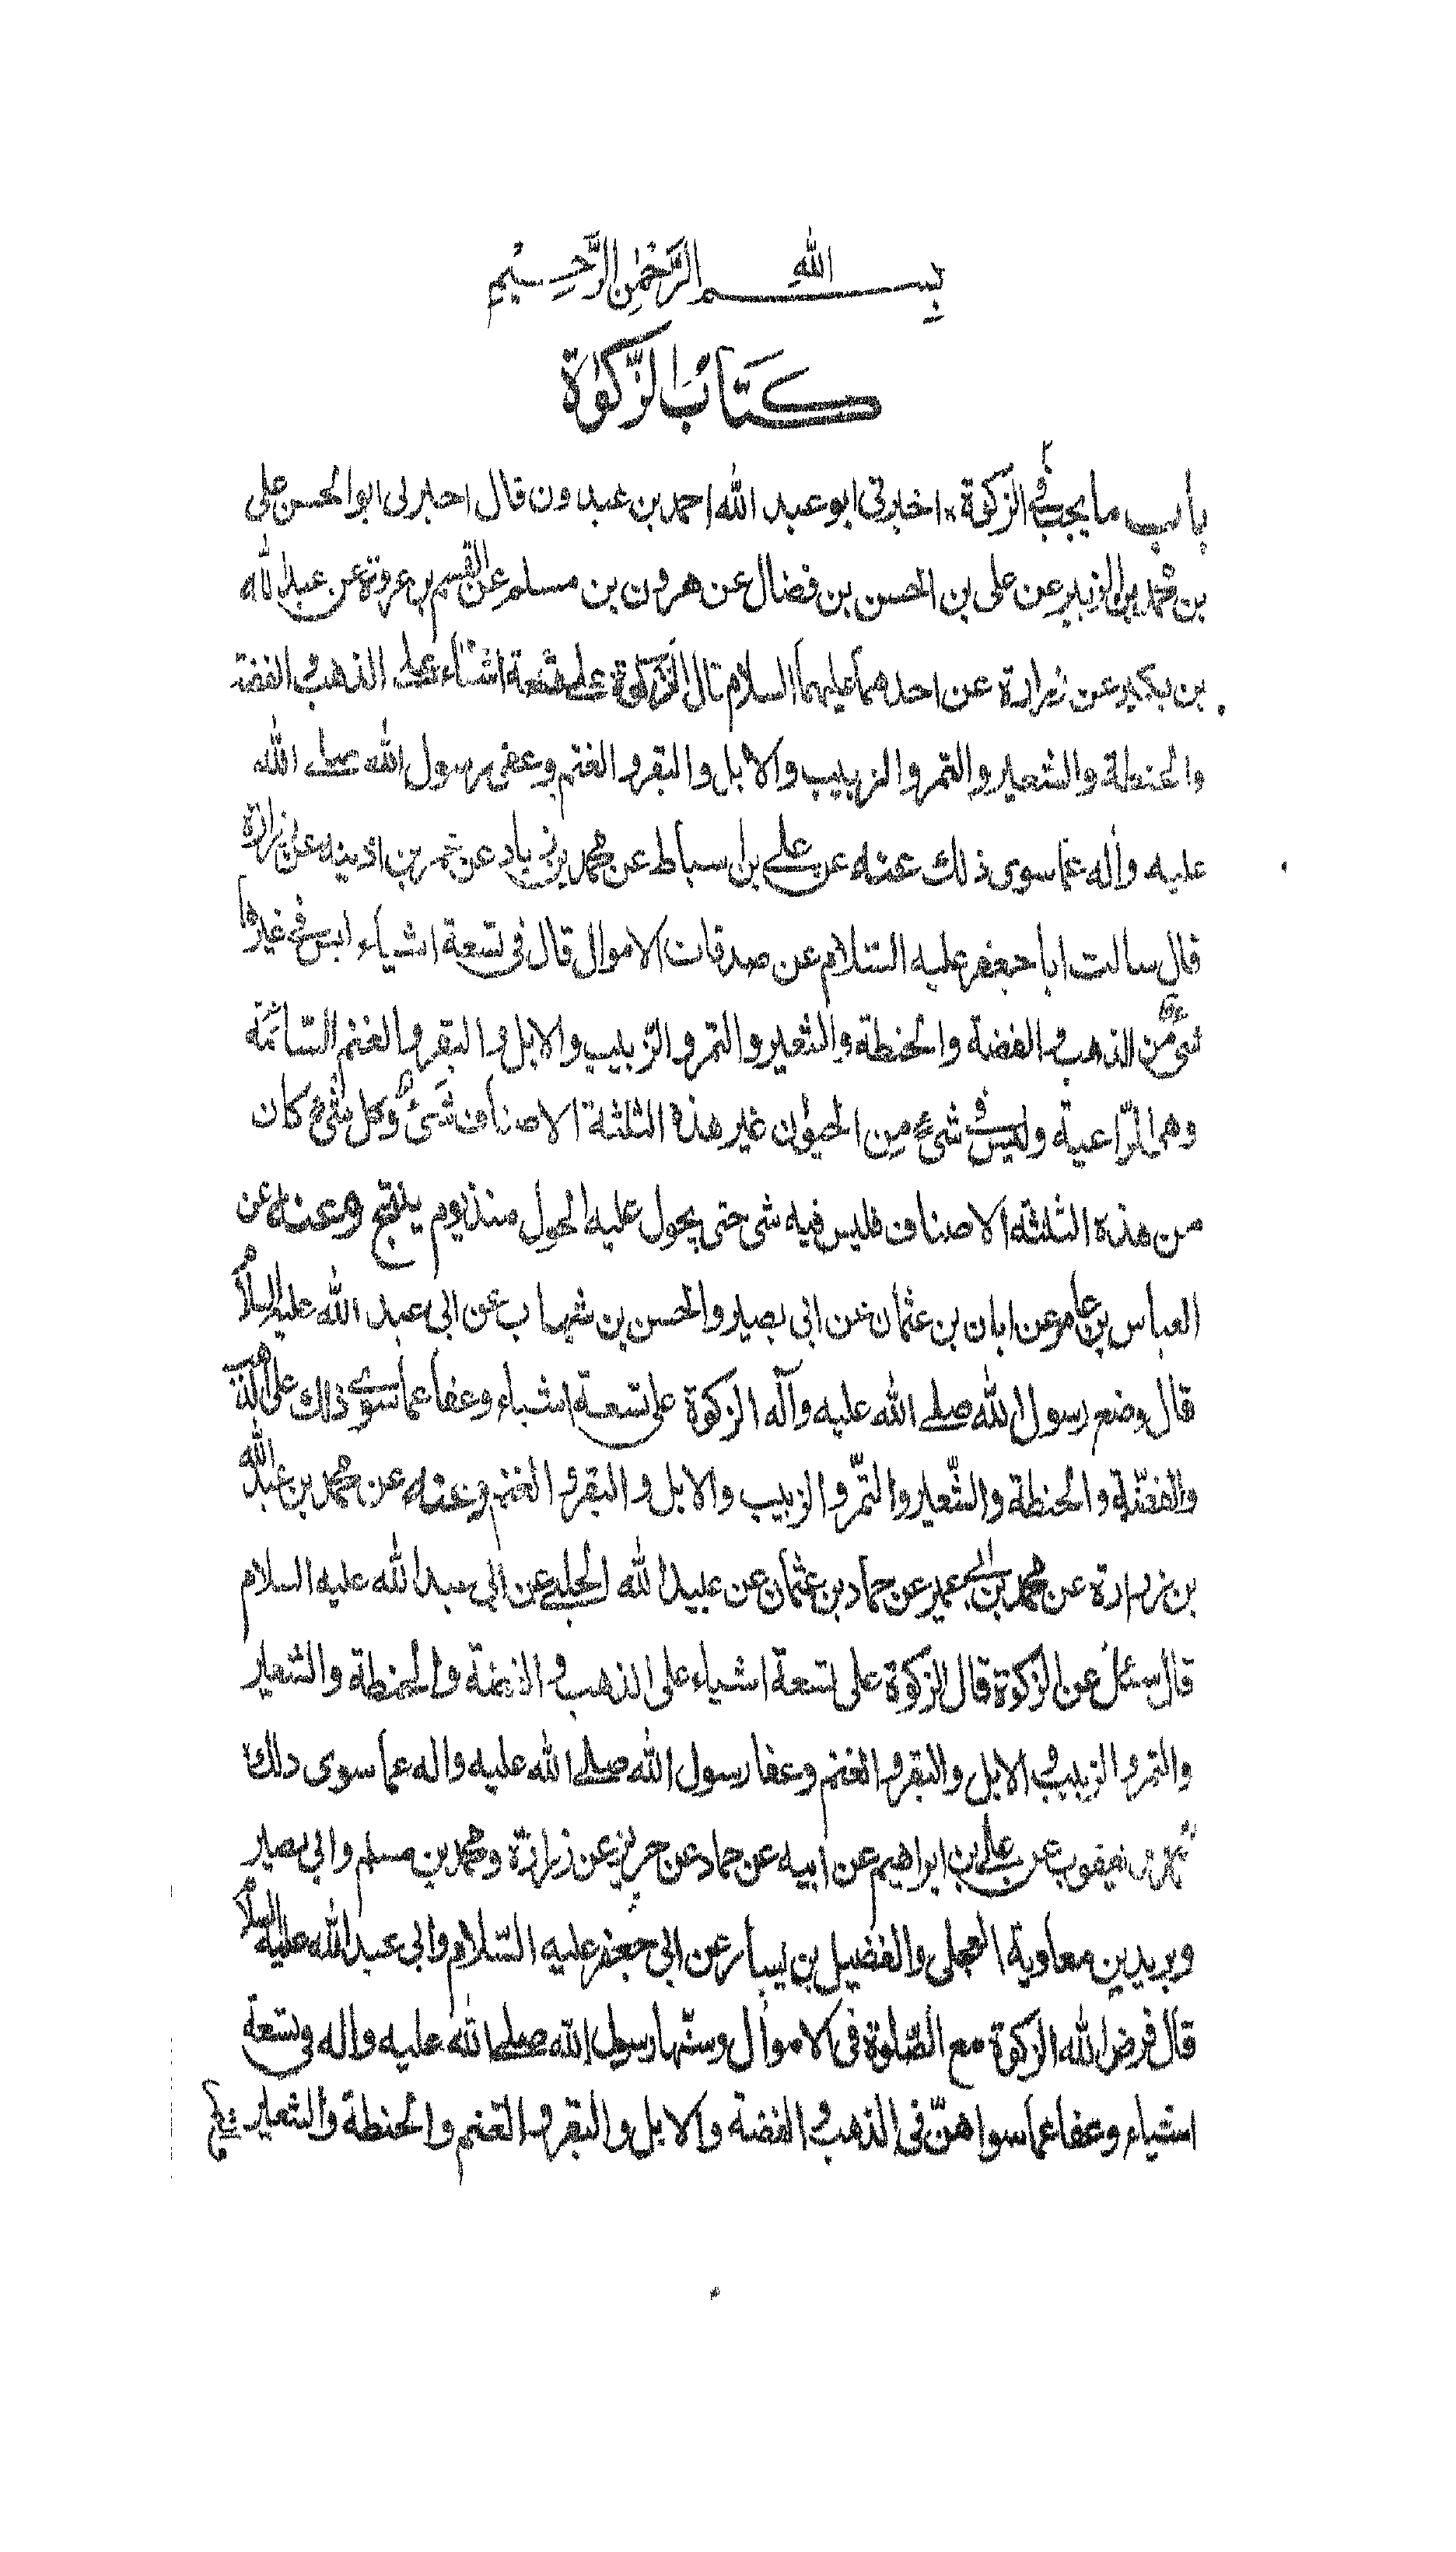 بسم الله الرحمن الرحيم
كتاب الزكوة
باب ما يجب فى الزكوة اخبرنى ابو عبد الله احمد بن عبدون قال اخبرنى ابو الحسن على
بن محمد بن الزبير عن على بن الحسن بن فضال عن هرون بن مسلم عن القسم بن عروة عن عبد الله
بن بكير عن زرارة عن احدهما عليهما السلام قال الزكوة على تسعة اشياء على الذهب و الفضة
والحنطة والشعير والتمر والزبيب والابل والبقر والغنم وعفى رسول الله صلى الله
عليه وآله عما سوى ذلك عنه عن على بن اسباط عن محمد بن زياد عن عمر بن اذينه عن زرارة
قال سالت ابا جعفر عليه السلام عن صدقات الاموال قال فى تسعة اشياء ليس فى غيرها
شئ من الذهب والفضة والحنطة والشعير والتمر والزبيب والابل والبقر والغنم السائمة
وهى الراعية وليس فى شئ من الحيوان غير هذه الثلثة الاصناف شئ وكل شئ كان
من هذه الثلثه الاصناف فليس فيه شى حتى يحول عليه الحول منذ يوم ينتج وعنه عن
العباس بن عامر عن ابان بن عثمان عن ابى بصير والحسن بن شهاب عن ابى عبد الله عليه السلام
قال وضع رسول الله صلى الله عليه وآله الزكوة على تسعة اشياء وعفا عما سوى ذلك على الذهب
والفضة والحنطة والشعير والتمر والزبيب والابل والبقر والغنم وعنه عن محمد بن عبد الله
بن زرارة عن محمد بن ابى عمير عن حماد بن عثمان عن عبيد الله الحلبى عن ابى عبد الله عليه السلام
قال سئل عن الزكوة قال الزكوة على تسعة اشياء على الذهب والفضة والحنطة والشعير
والتمر والزبيب والابل والبقر والغنم وعفا رسول الله صلى الله عليه واله عما سوى ذلك
محمد بن يعقوب عن على بن ابراهيم عن ابيه عن حماد عن حريز عن زرارة ومحمد بن مسلم وابى بصير
وبريد بن معاوية العجلى والفضيل بن يسار عن ابى جعفر عليه السلام وابى عبد الله عليه السلام
قال فرض الله الزكوة مع الصلوة فى الاموال وسنها رسول الله صلى الله عليه واله فى تسعة
اشياء وعفا عما سواهن فى الذهب والفضة والابل والبقر والغنم والحنطة والشعير